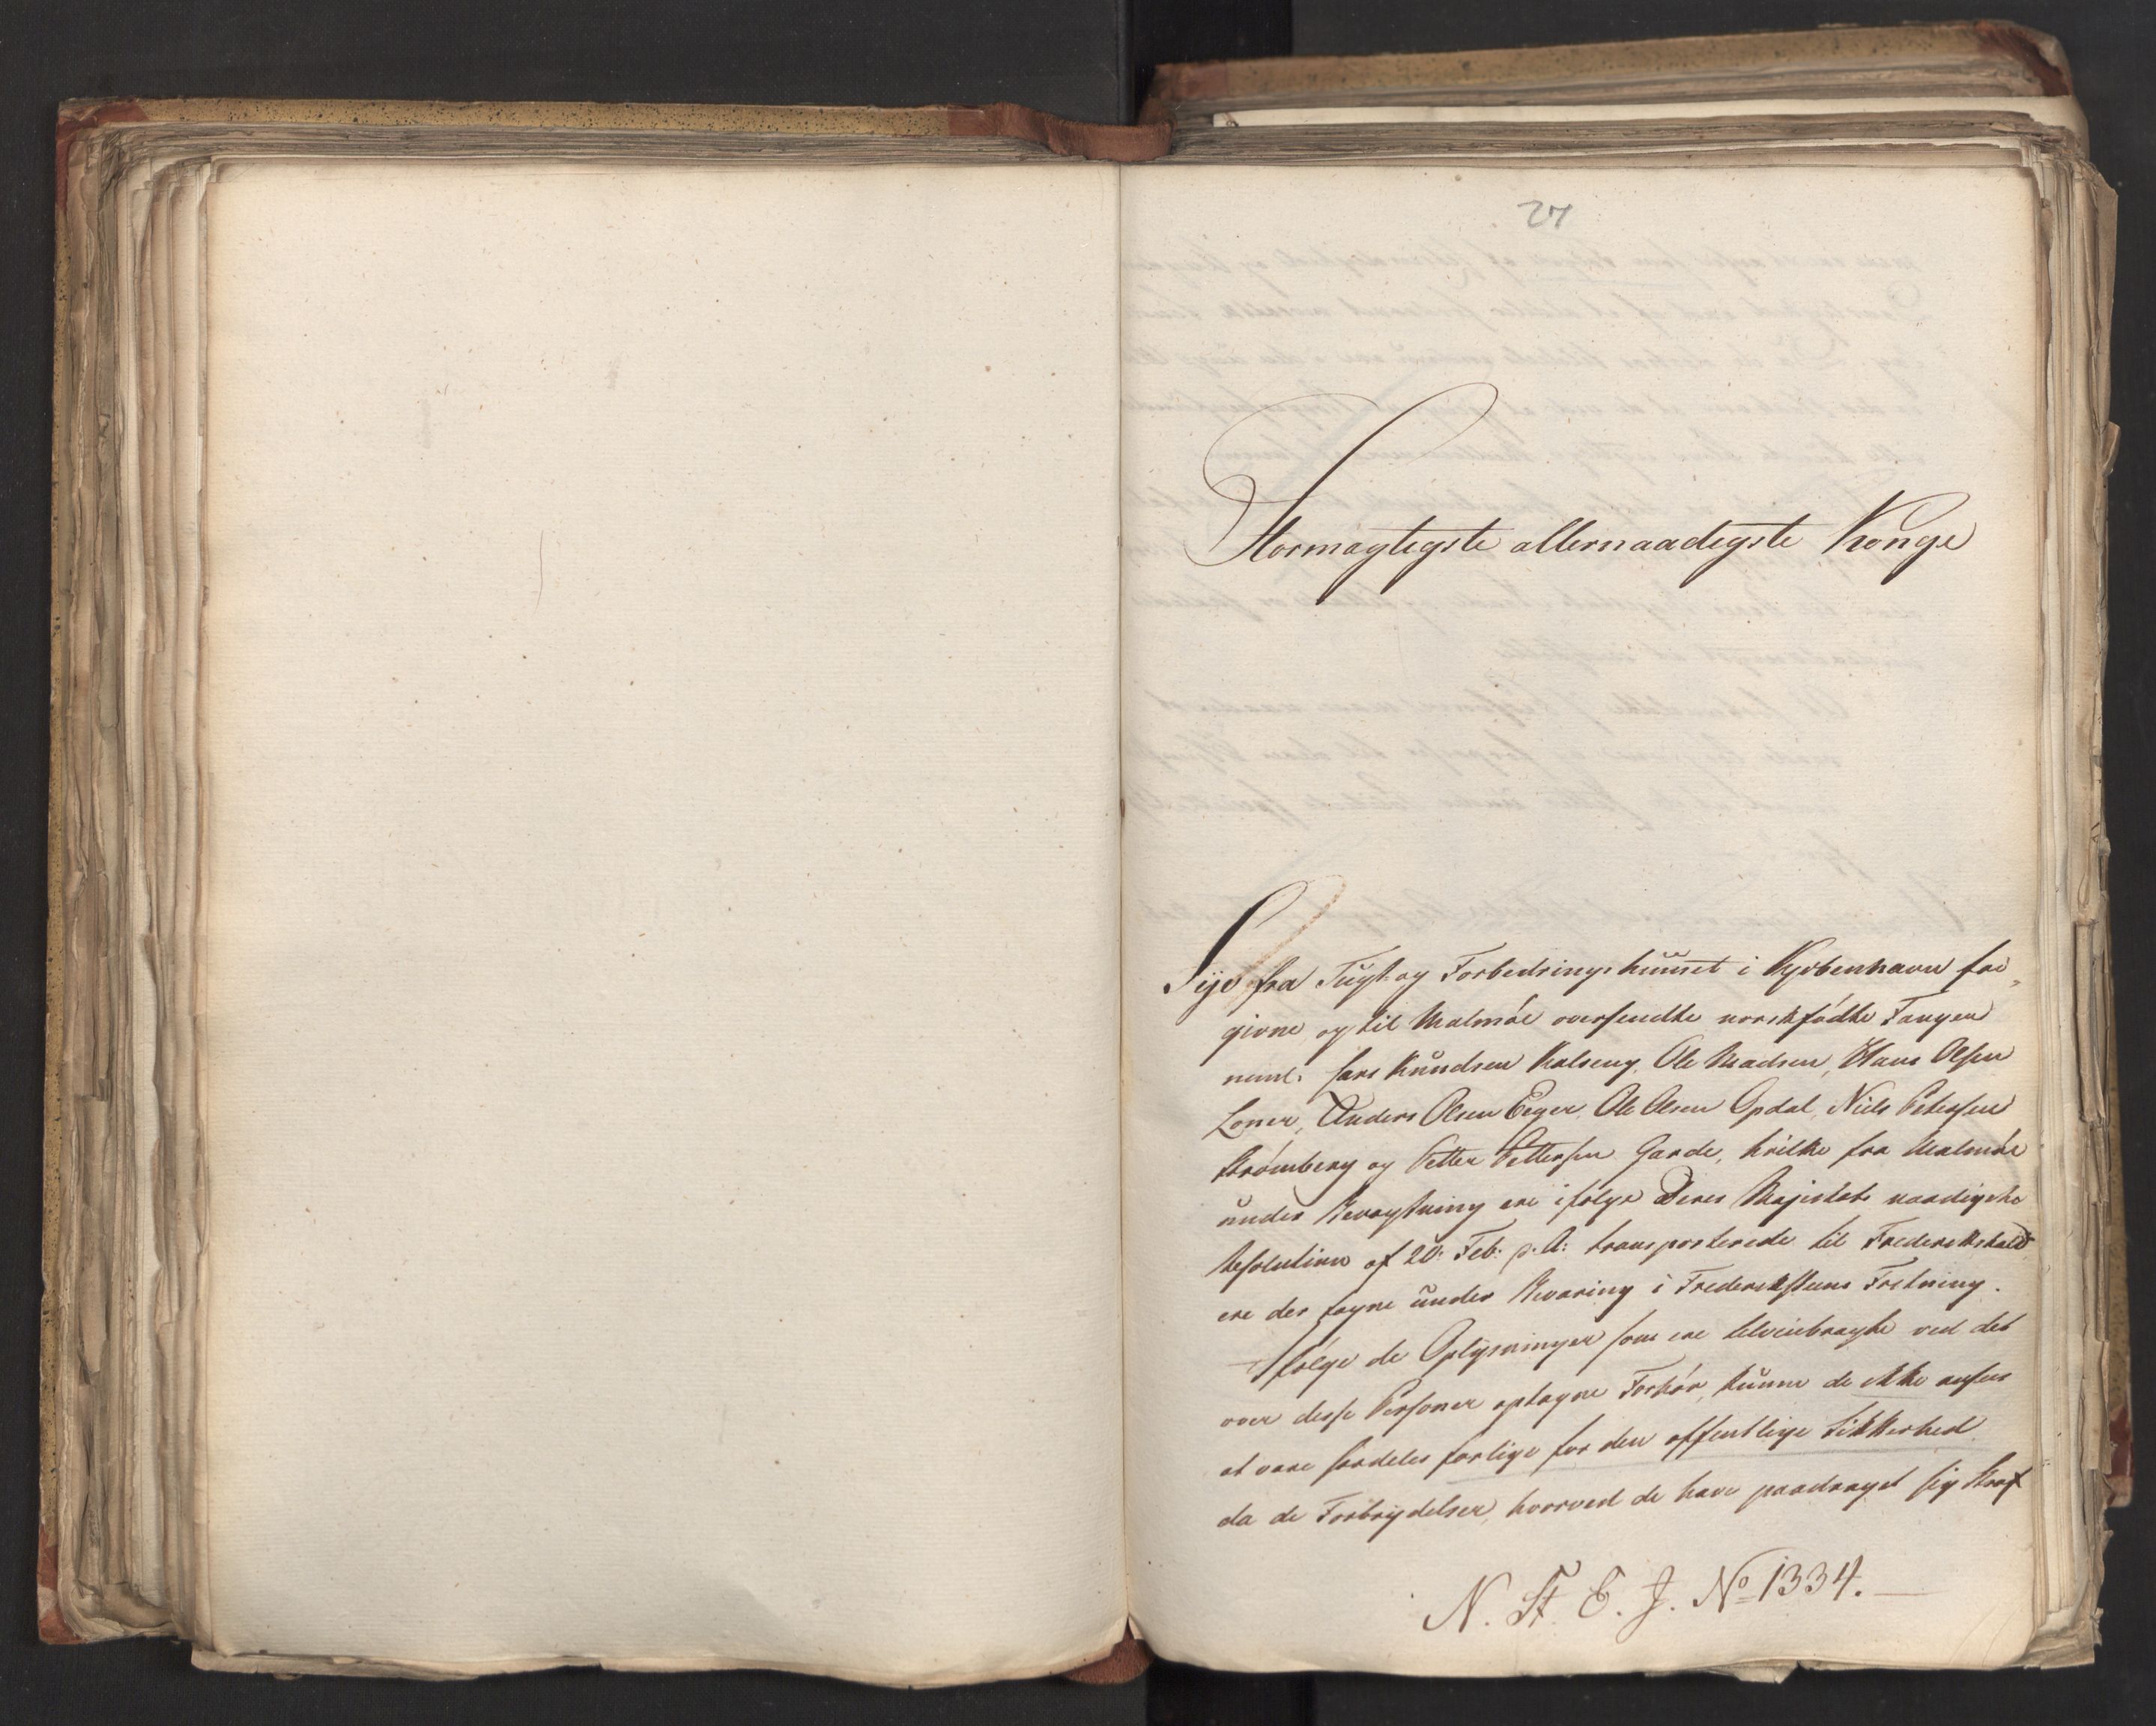 27
Stormægtigste allernaadigste Konge
Syv fra Tugt og Forbedringshuuset i Kjöbenhavn fri„
givne og til Malmöe oversendte norskfödte Fanger
neml: Lars Knudsen Kalseng, Ole Madsen, Hans Olsen
Loner, Anders Olsen Eeger, Ole Olsen Opdal, Niels Petersen
Strömberg og Petter Pettersen Garde, hvilke fra Malmöe
under Bevogtning ere ifölge Deres Majestæts naadigste
Resolution af 20. Feb: d. A: transporterede til Frederikshald
ere der tagne under Bevaring i Frederikstens Fæstning.
Ifölge de Oplysninger som ere tilveiebragte ved det
over disse Personer optagne Forhör, kunne de ikke ansees
at være særdeles farlige for den offentlige Sikkerhed
da de Forbrydelser, hvorved de have paadraget sig Straf
N. St. E. J. No 1334.